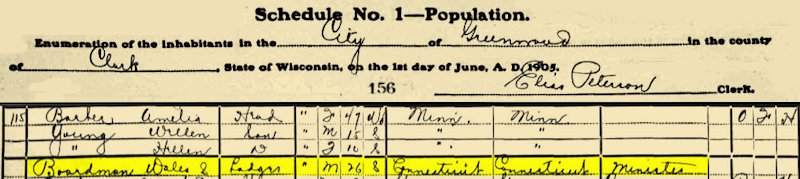 Schedule No. 1—Population.
Enumeration of the inhabitants in the City of Greenwood in the county
of Clark, State of Wisconsin, on the 1st day of June, A. D. 1905.
156 Elias Peterson Clerk.
115 Barber Amelia Head " F 47 Wd Minn. Minn O F H
Young Willen Son " M 15 S " "
" Hellen D " F 10 S " "
Boardman Wales E Lodger " M 26 S Connecticut Connecticut Minister